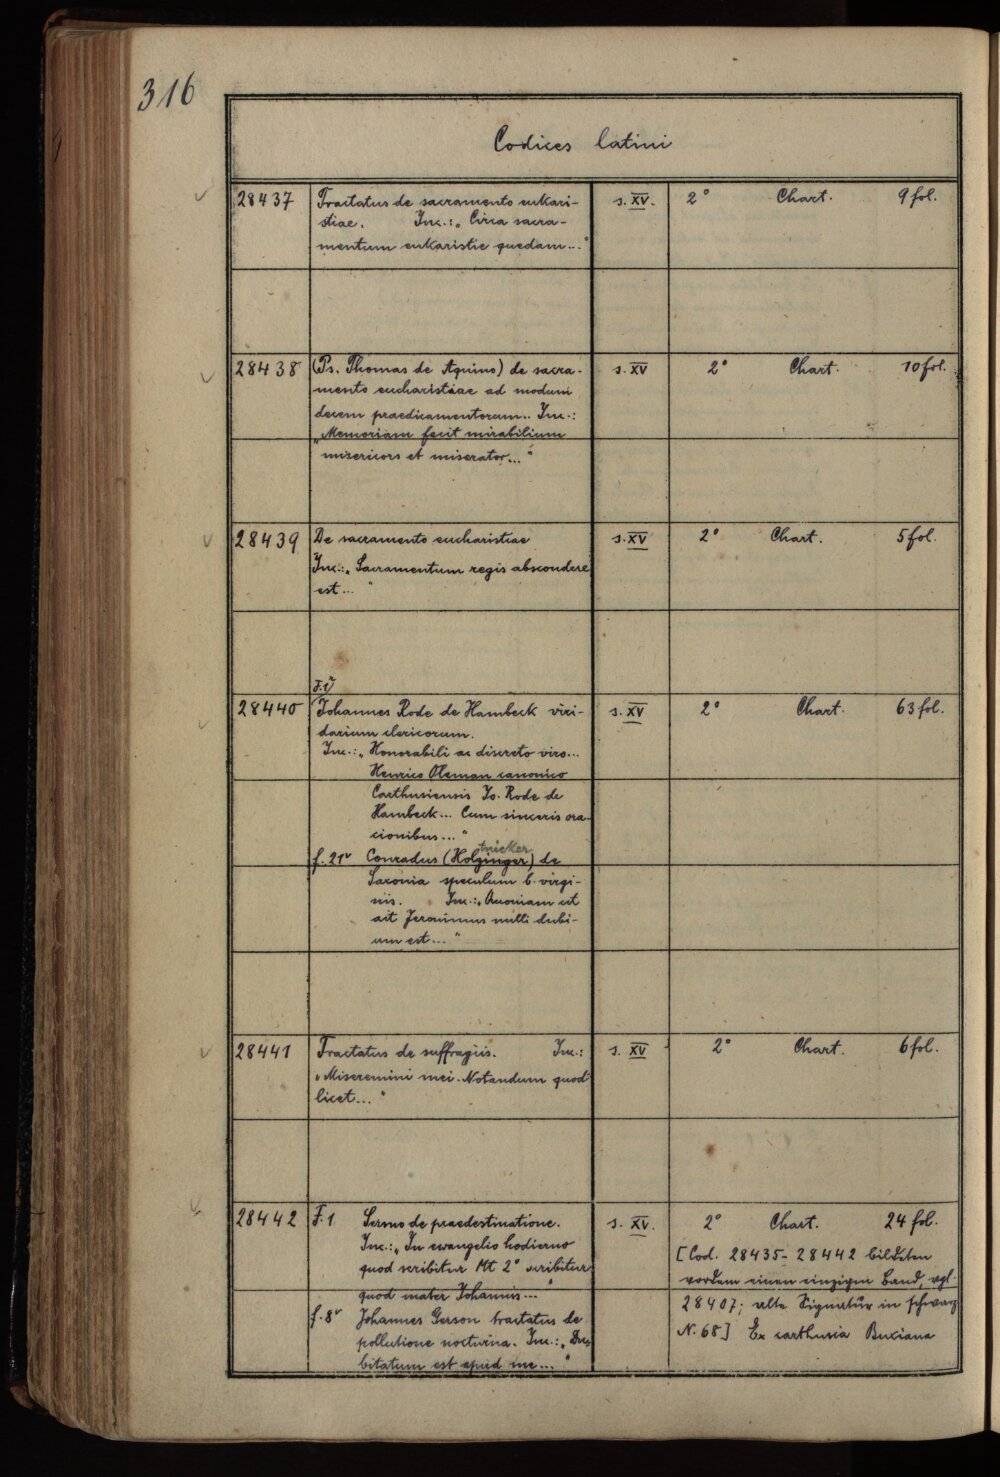 316
Codices latini
28437 Tractatus de sacramento eukari- s. XV. 2° Chart. 9 fol.
stiae. Inc.: „Circa sacra-
mentum eukaristie quedam..."
28438 (Ps. Thomas de Aquino) de sacra- s. XV 2° Chart. 10 fol.
mento eucharistiae ad modum
decem praedicamentorum.. Inc.:
„Memoriam fecit mirabilium
misericors et miserator..."
28439 De sacramento eucharistiae s. XV 2° Chart. 5 fol.
Inc.: „Sacramentum regis abscondere
est..."
F. 1r
28440 Johannes Rode de Hambeck viri- s. XV 2° Chart. 63 fol.
darium clericorum.
Inc.: „Honorabili ac discreto viro...
Henrico Oleman canonico
Carthusiensis Jo. Rode de
Hambeck... Cum sinceris ora-
cionibus..."
tricker
f. 21v Conradus (Holzinger) de
Saxonia speculum b. virgi-
nis. Inc.: „Quoniam ut
ait Jeronimus nulli dubi-
um est..."
28441 Tractatus de suffragiis. Inc.: s. XV 2° Chart. 6 fol.
„Miseremini mei. Notandum quod
licet..."
28442 F. 1 Sermo de praedestinatione. s. XV. 2° Chart. 24 fol.
Inc.: „In ewangelio hodierno [Cod. 28435-28442 bildeten
quod scribitur Mt 2° scribitur vordem einen einzigen Band, vgl.
quod mater Johannis..." 28407; alte Signatur in schwarz
f. 8v Johannes Gerson tractatus de N. 68] Ex carthusia Buxiana
pollutione nocturna. Inc.: „Du-
bitatum est apud me..."